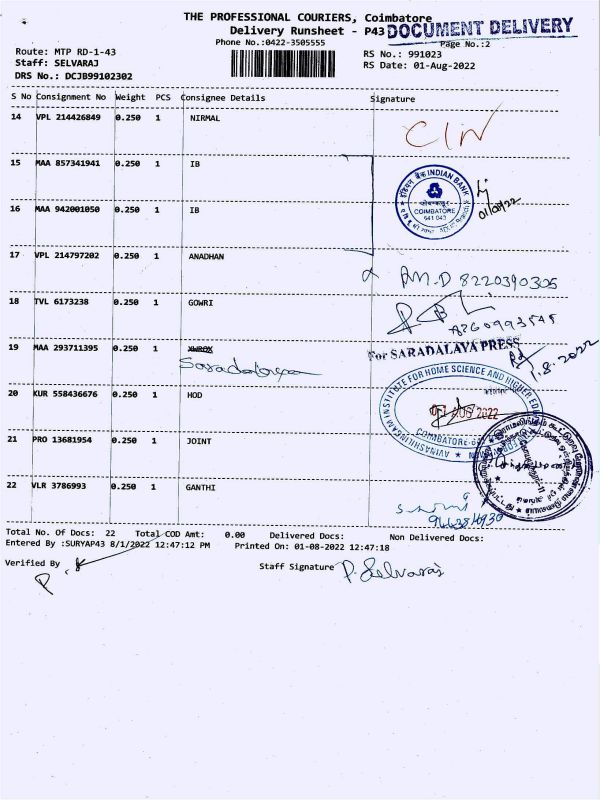 THE PROFESSIONAL COURIERS, Coimbatore
Delivery Runsheet - P43
DOCUMENT DELIVERY
Phone No.:0422-3505555
Page No.:2
Route: MTP RD-1-43
RS No.: 991023
Staff: SELVARAJ
RS Date: 01-Aug-2022
DRS No.: DCJB99102302
S No Consignment No Weight PCS Consignee Details Signature
14 VPL 214426849 0.250 1 NIRMAL
15 MAA 857341941 0.250 1 IB
INDIAN BANK
COIMBATORE
641 043
01/08/22
16 MAA 942001050 0.250 1 IB
17 VPL 214797202 0.250 1 ANADHAN
8220390305
18 TVL 6173238 0.250 1 GOWRI
19 MAA 293711395 0.250 1 XWROX
For SARADALAYA PRESS
1.8.2022
20 KUR 558436676 0.250 1 HOD
AVINASHILINGAM INSTITUTE FOR HOME SCIENCE AND HIGHER
COIMBATORE
01 AUG 2022
21 PRO 13681954 0.250 1 JOINT
22 VLR 3786993 0.250 1 GANTHI
Total No. Of Docs: 22 Total COD Amt: 0.00 Delivered Docs: Non Delivered Docs:
Entered By :SURYAP43 8/1/2022 12:47:12 PM Printed On: 01-08-2022 12:47:18
Verified By
Staff Signature P. Selvaraj